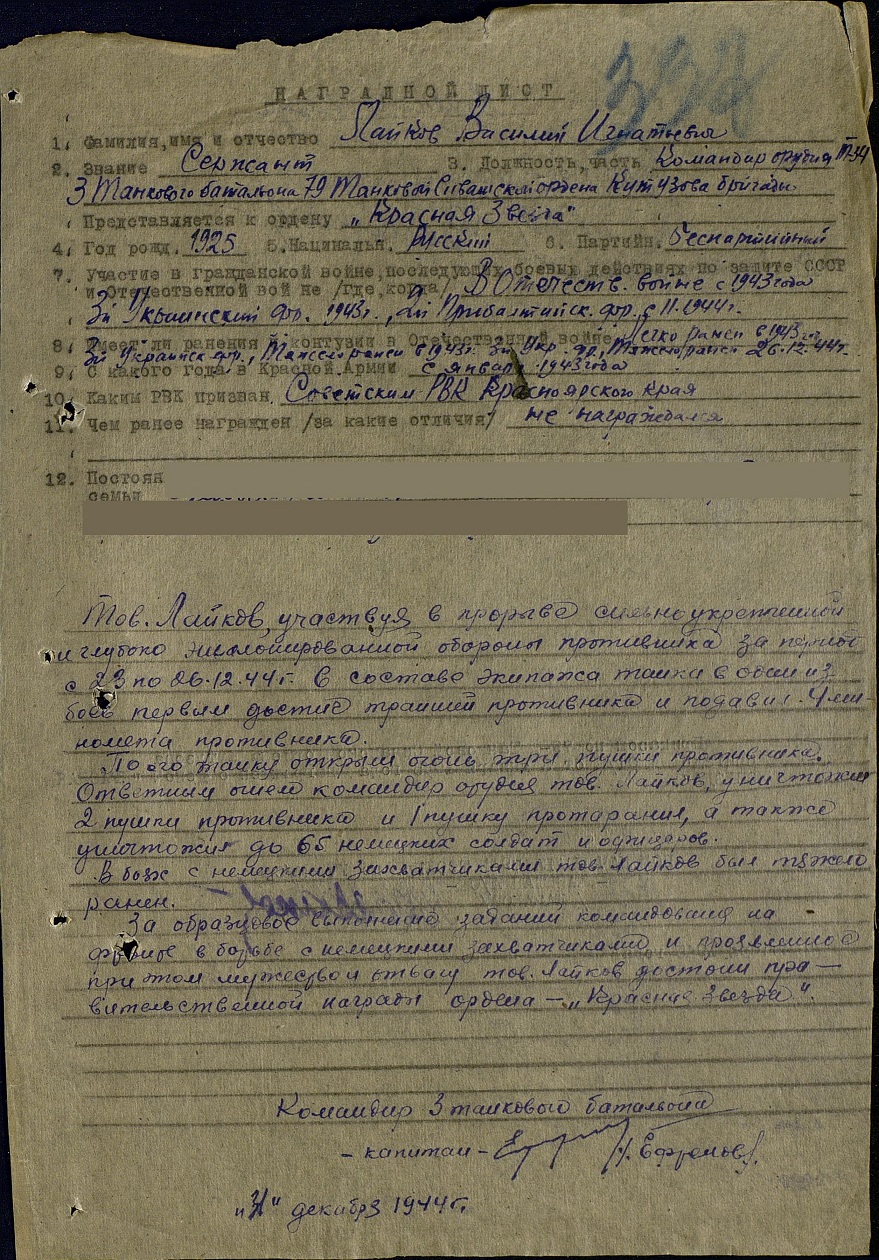 332
НАГРАДНОЙ ЛИСТ
1. Фамилия,имя и отчество Лайков Василий Игнатьевич
2. Звание Сержант 3. Должность,часть Командир орудия Т-34
3 Танкового батальона 79 Танковой Сивашской ордена Кутузова бригады
Представляется к ордену „Красная Звезда"
4. Год рожд. 1925 5.Националья. Русский 6. Партийн. беспартийный
7. Участие в гражданской войне,последующих боевых действиях по защите СССР
и Отечественной вой не /где,когда/ В Отечеств. войне с 1943 года
3й Украинский фр. 1943г., 2й Прибалтийск. фр. с 11.1944г.
8. Имеет ли ранения и контузии в Отечественной войне Легко ранен в 1943
3й Украинск фр., Тяжело ранен в 1943г. 3й Укр. фр., Тяжело ранен 26.12.44г.
9. С какого года в Красной Армии с января 1943 года
10. Каким РВК призван Советским РВК Красноярского края
11. Чем ранее награжден /за какие отличия/ не награждался
12. Постоян
семьи
Тов. Лайков, участвуя в прорыве сильно укрепленной
и глубоко эшелонированной обороны противника за период
с 23 по 26.12.44г. в составе экипажа танка в одном из
боев первым достиг траншей противника и подавил 4 ми-
номета противника.
По его танку открыли огонь три пушки противника.
Ответным огнем командир орудия тов. Лайков, уничтожил
2 пушки противника и 1 пушку протаранил, а также
уничтожил до 65 немецких солдат и офицеров.
В боях с немецкими захватчиками тов Лайков был тяжело
ранен.
За образцовое выполнение заданий командования на
фронте в борьбе с немецкими захватчиками и проявленное
при этом мужество и отвагу тов. Лайков достоин пра—
вительственной награды ордена —„Красная Звезда".
Командир 3 танкового батальона
- капитан - /Ефремов/.
„31" декабря 1944г.